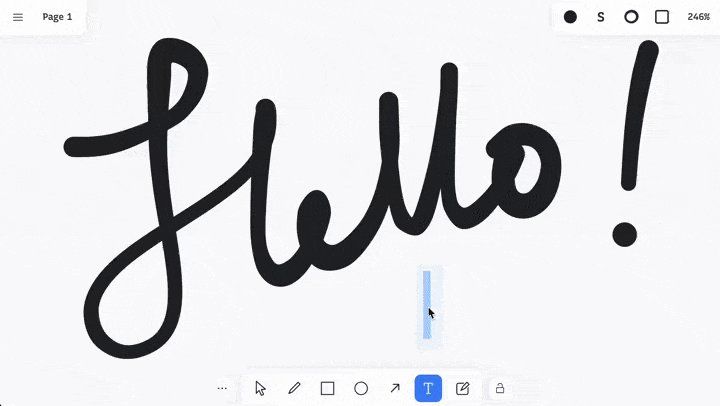 Page 1
S
246%
Hello!
T